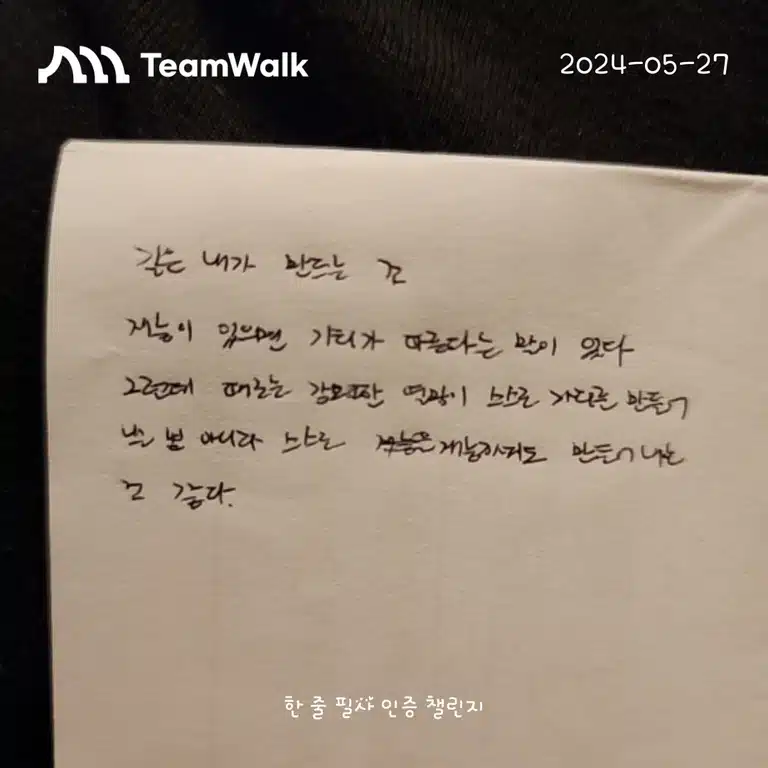 TeamWalk
2024-05-27
길은 내가 만드는 것
재능이 있으면 기회가 따른다는 말이 있다
그런데 때로는 강력한 열망이 스스로 기회를 만들어
낼 뿐 아니라 스스로 재능까지도 만들어 내는
것 같다.
한 줄 필사 인증 챌린지